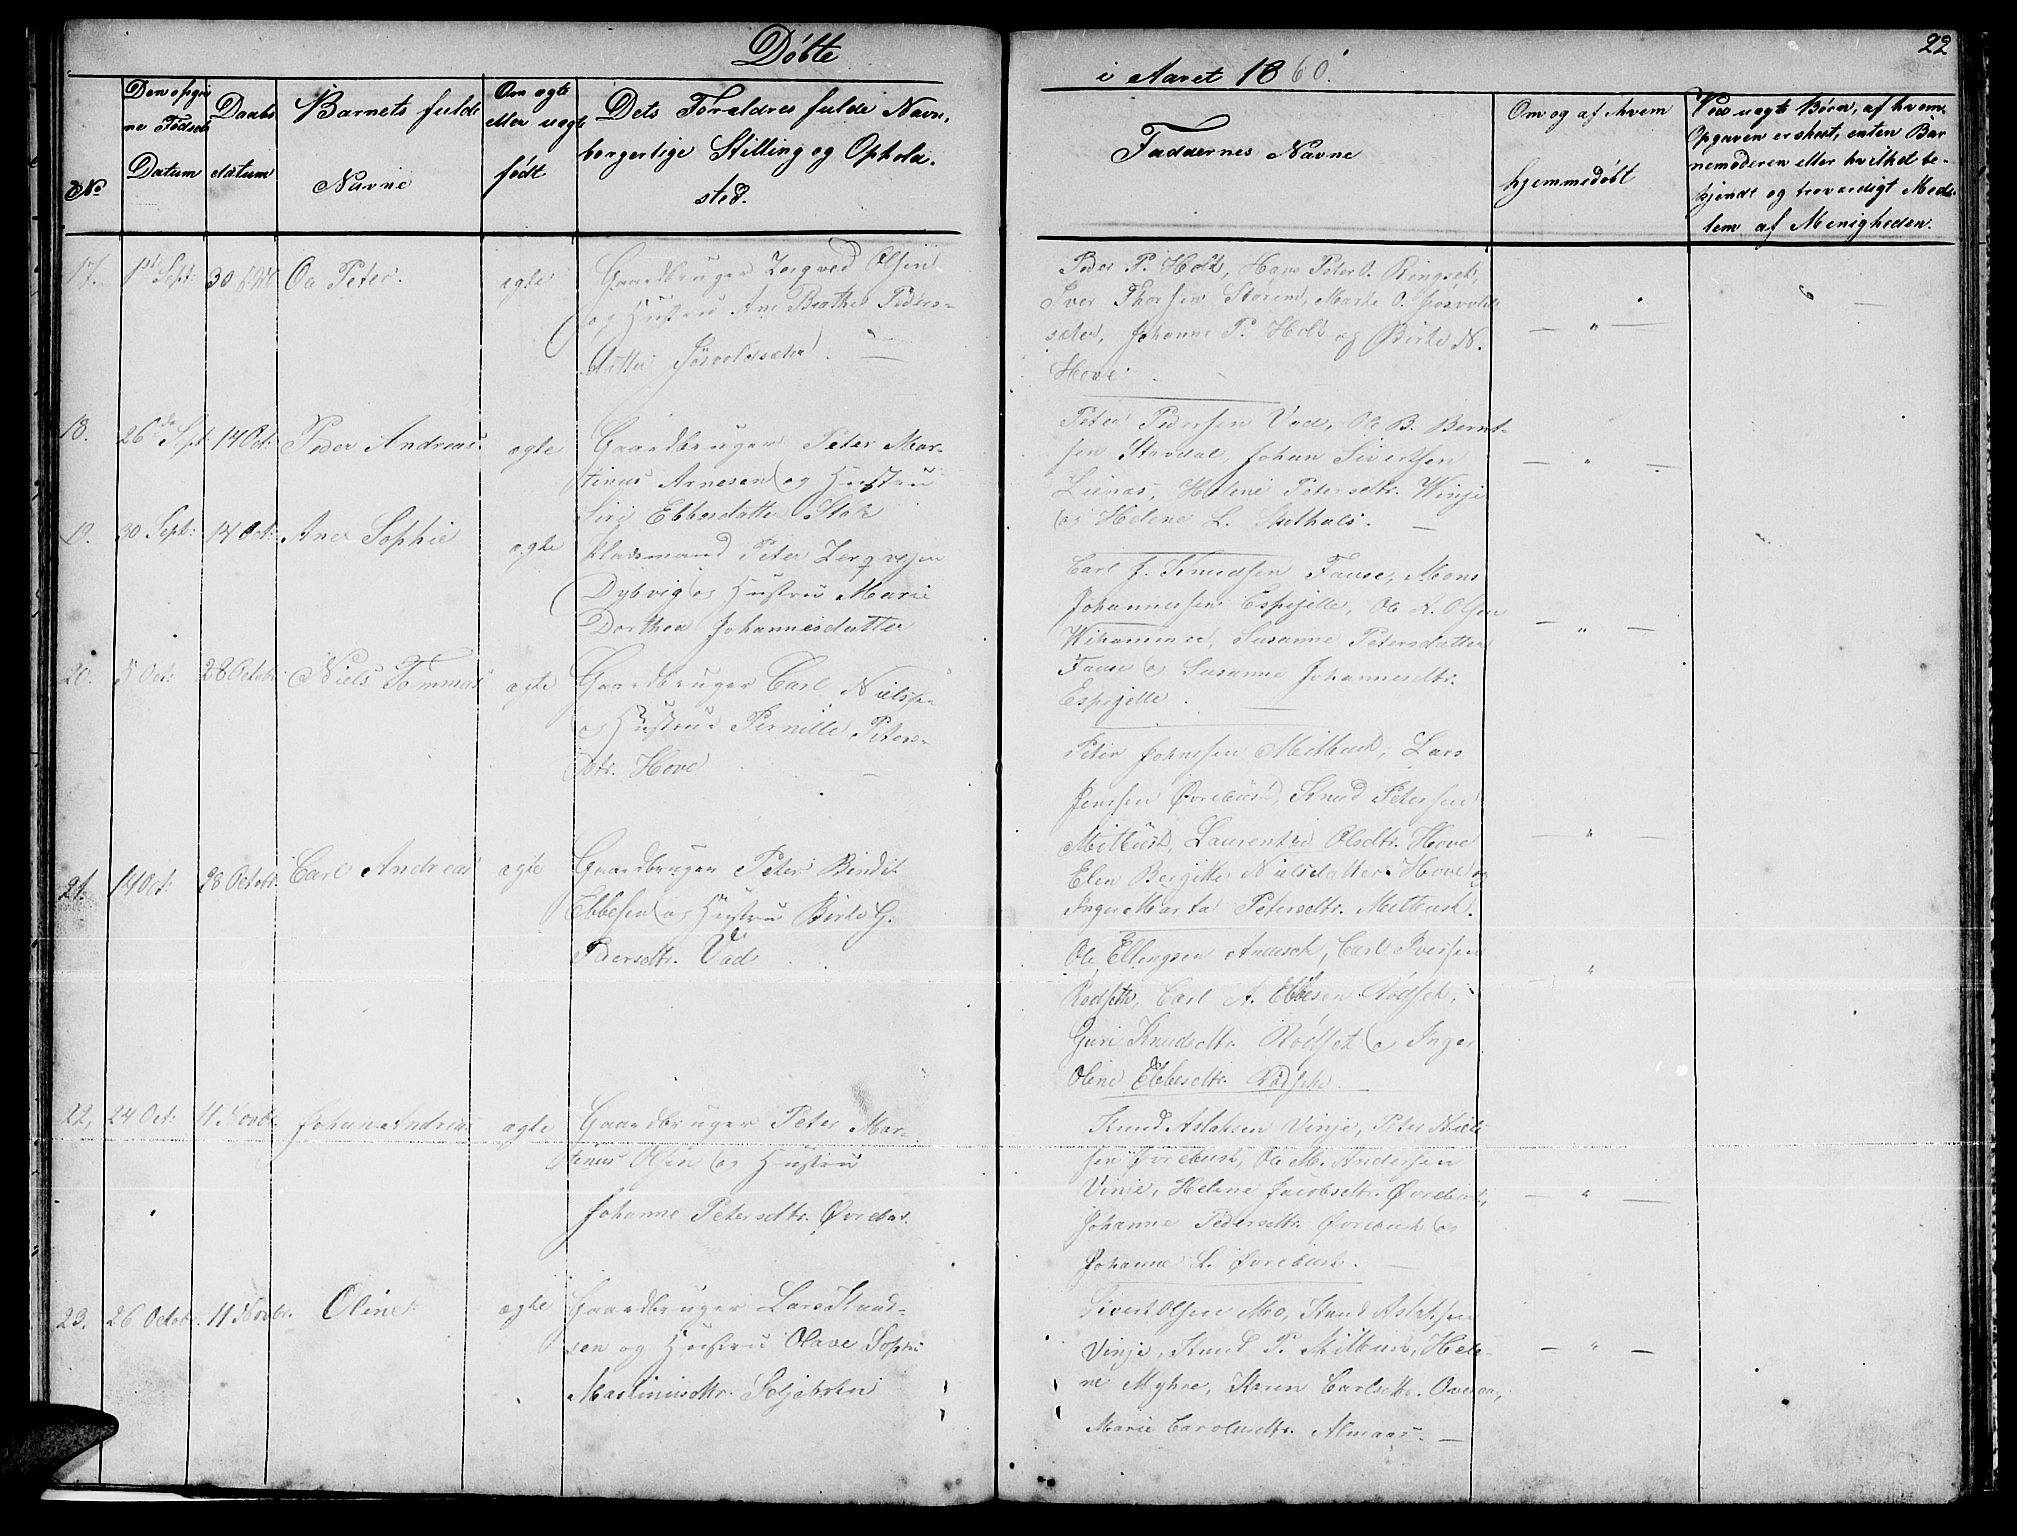 Døbte
i Aaret 1860.
22
No
Den opgivne Fødsels Datum
Daabsdatum
Barnets fulde Navne
Om ægte eller uægte født
Dets Forældres fulde Navn, borgerlige Stilling og Opholdsted.
Faddernes Navne
Om og af hvem hjemmedøbt
Ved uægte Børn, af hvem Opgaven er skeet, enten Barnemoderen eller hvilket bekjendt og troværdigt Medlem af Menigheden.
17. 1st Sept: 30 Ole Peter. ægte
Gaardbruger Olsen
og Hustru Ane Brathe Peders-
datter
Peder P. Holt, Hans Peter O. Ringset,
Iver Thorsen Støren, Marte O.
sæter, Johanne P. Holt og Birte N.
Hove
— " —
18. 26de Sept: 14 Oct: Peder Andreas ægte
Gaardbruger Peter Mar-
tinus Arnesen og Hustru
Siri Ebbesdatter Stok
Peter Pedersen Vad, Ole B. Bernt-
sen Stavdal, Johan Sivertsen
Helene Petersdtr. Winje
og Helene L.
— " —
19. 30 Sept: 14 Oct: Ane Sophie ægte
Pladsmand Peter
Dybvig og Hustru Marie
Dorthea Johannesdatter
Carl J. Knudsen Fause, Mons
Johannessen Espejelle, Ole K. Olsen
Susanne Petersdatter
Fause og Susanne Johannesdtr.
Espejelle.
— " —
20. 5 Oct: 28 Octobr. Niels Tommas ægte
Gaardbruger Carl Nielsen
og Hustru Pernille Peters-
dtr. Hove
Peter Johnssen Mitbust, Lars
Jenssen Øvrebust, Knud Petersen
Mitbust, Olsdtr. Hove
Elen Bergitte Nielsdatter Hove og
Inger Marta Petersdtr. Mitbust.
— " —
21. 14 Oct: 28 Octobr. Carl Andreas ægte
Gaardbruger Peter Bendit
Ebbesen og Hustru Birte G.
Pedersdtr. Vad
Ole Ellengsen Carl Iversen
Rødsette, Carl A. Ebbesen Rødset,
Guri Knudsdtr. Rødset og Inger
Oline Ebbesdtr. Rødsete.
— " —
22, 24 Oct: 11 Novbr. Johan Andreas ægte
Gaardbruger Peter Mar-
tinus Olsen og Hustru
Johanne Petersdtr. Øvrebust.
Knud Aslaksen Vinje, Peter Niel-
sen Øvrebust, Ole M. Andersen
Vinje, Helene Jacobsdtr. Øvrebust,
Johanne Pedersdtr. Øvrebust og
Johanne L. Øvrebust.
— " —
23. 26 Octobr. 11 Novbr. Oline ægte
Gaardbruger Lars Knud-
sen og Hustru Olave Sopie
Martinusdtr.
Sivert Olsen Mo, Knud Aslaksen
Vinje, Knud P. Mitbust, Hele-
ne Myhre, Karen Carlsdtr.
Marie Carolusdtr. Almaas.
— " —